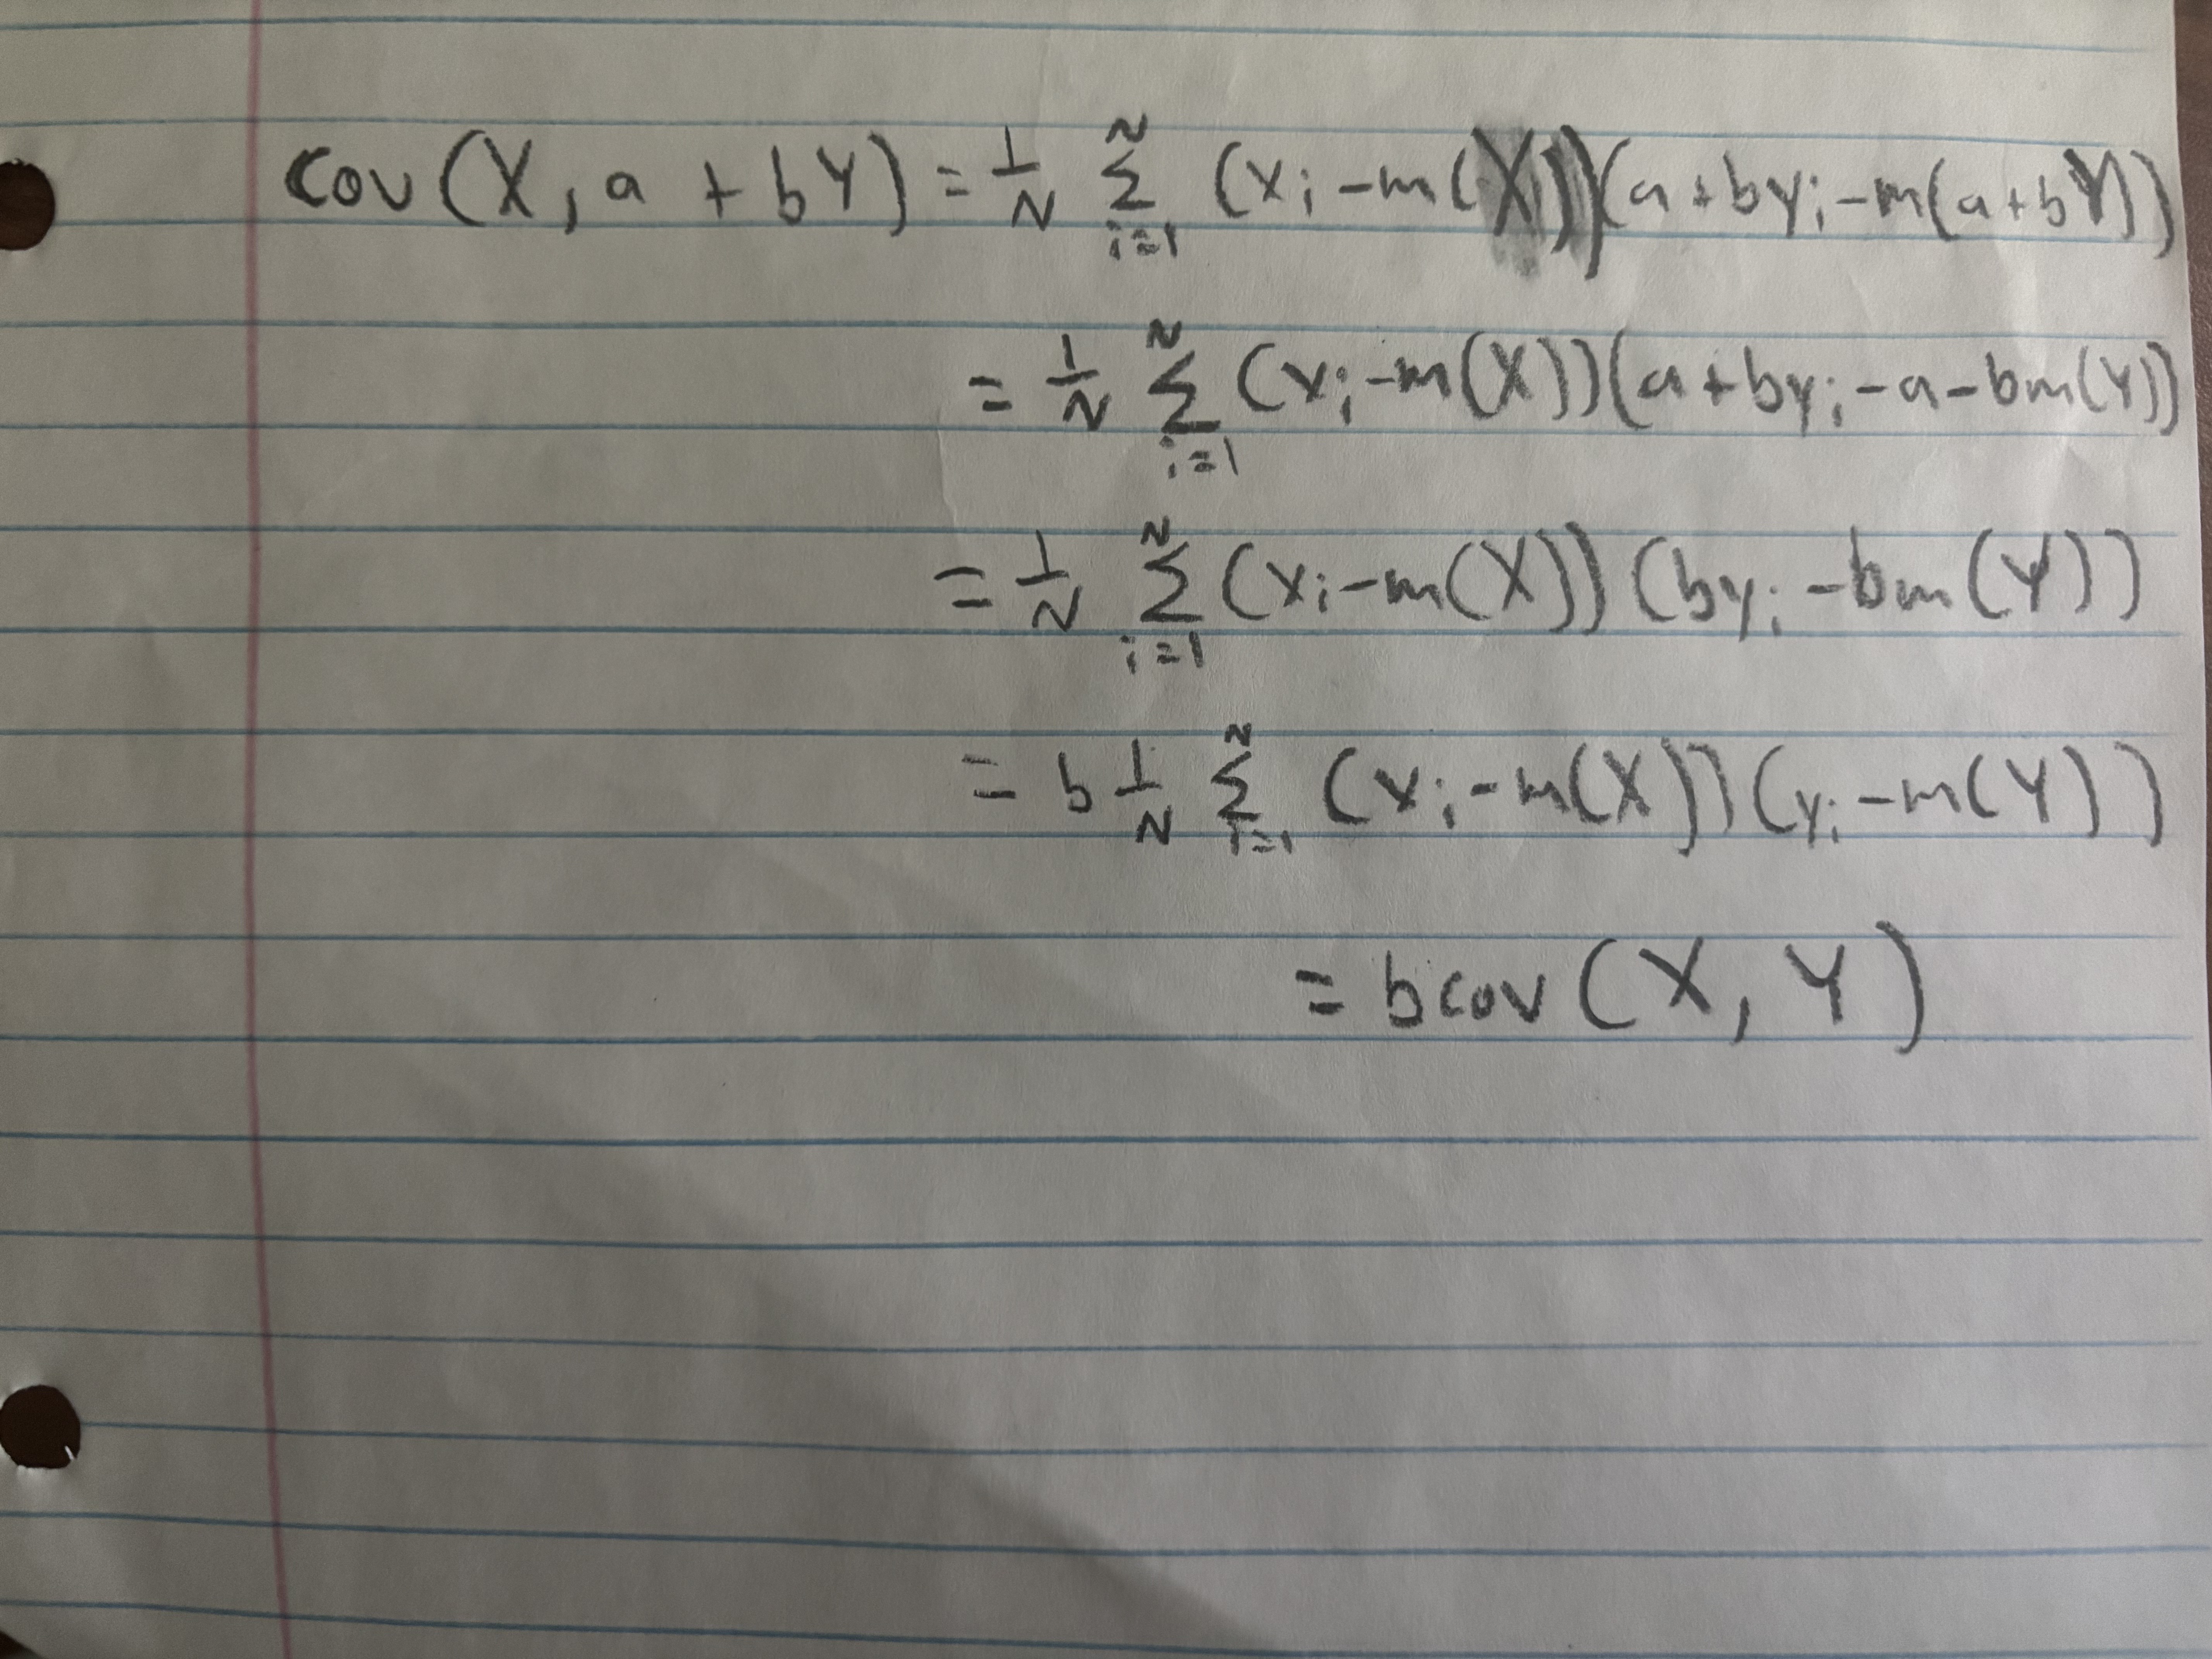 cov(X, a + bY) = 1/N Σ_{i=1}^{N} (x_i - m(X))(a + by_i - m(a + bY))
= 1/N Σ_{i=1}^{N} (x_i - m(X))(a + by_i - a - bm(Y))
= 1/N Σ_{i=1}^{N} (x_i - m(X))(by_i - bm(Y))
= b 1/N Σ_{i=1}^{N} (x_i - m(X))(y_i - m(Y))
= bcov(X, Y)